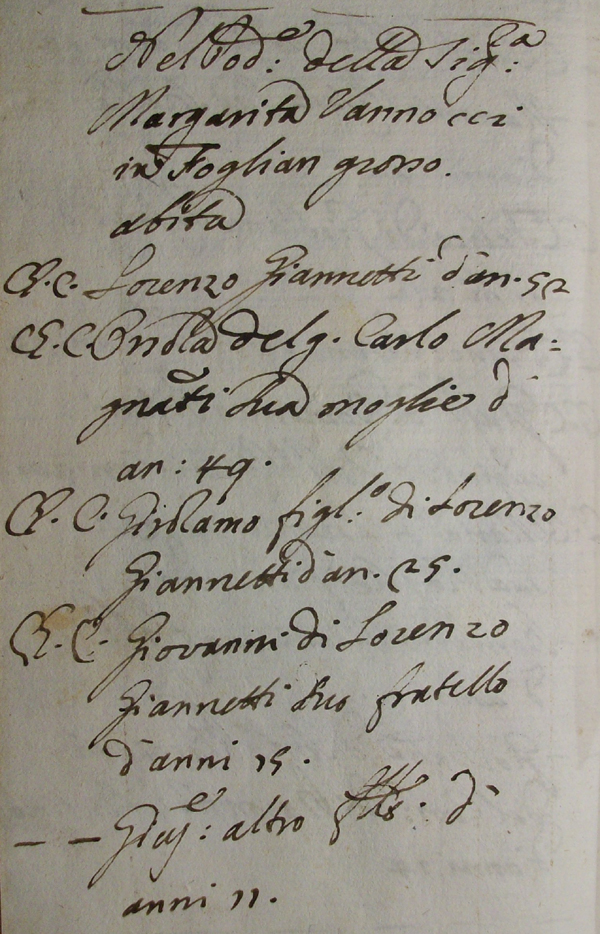 Nel Pod:e della Sig:ra
Margarita Vannocci
in Foglian grosso.
abita
C. C. Lorenzo Giannetti d'an. 52
C. C. Orsola del q. Carlo Ma=
gnati sua moglie d'
an: 49.
C. C. Girolamo figl:o di Lorenzo
Giannetti d'an. 25.
C. C. Giovanni di Lorenzo
Giannetti suo fratello
d'anni 15.
— — Gius:e altro d'
anni 11.